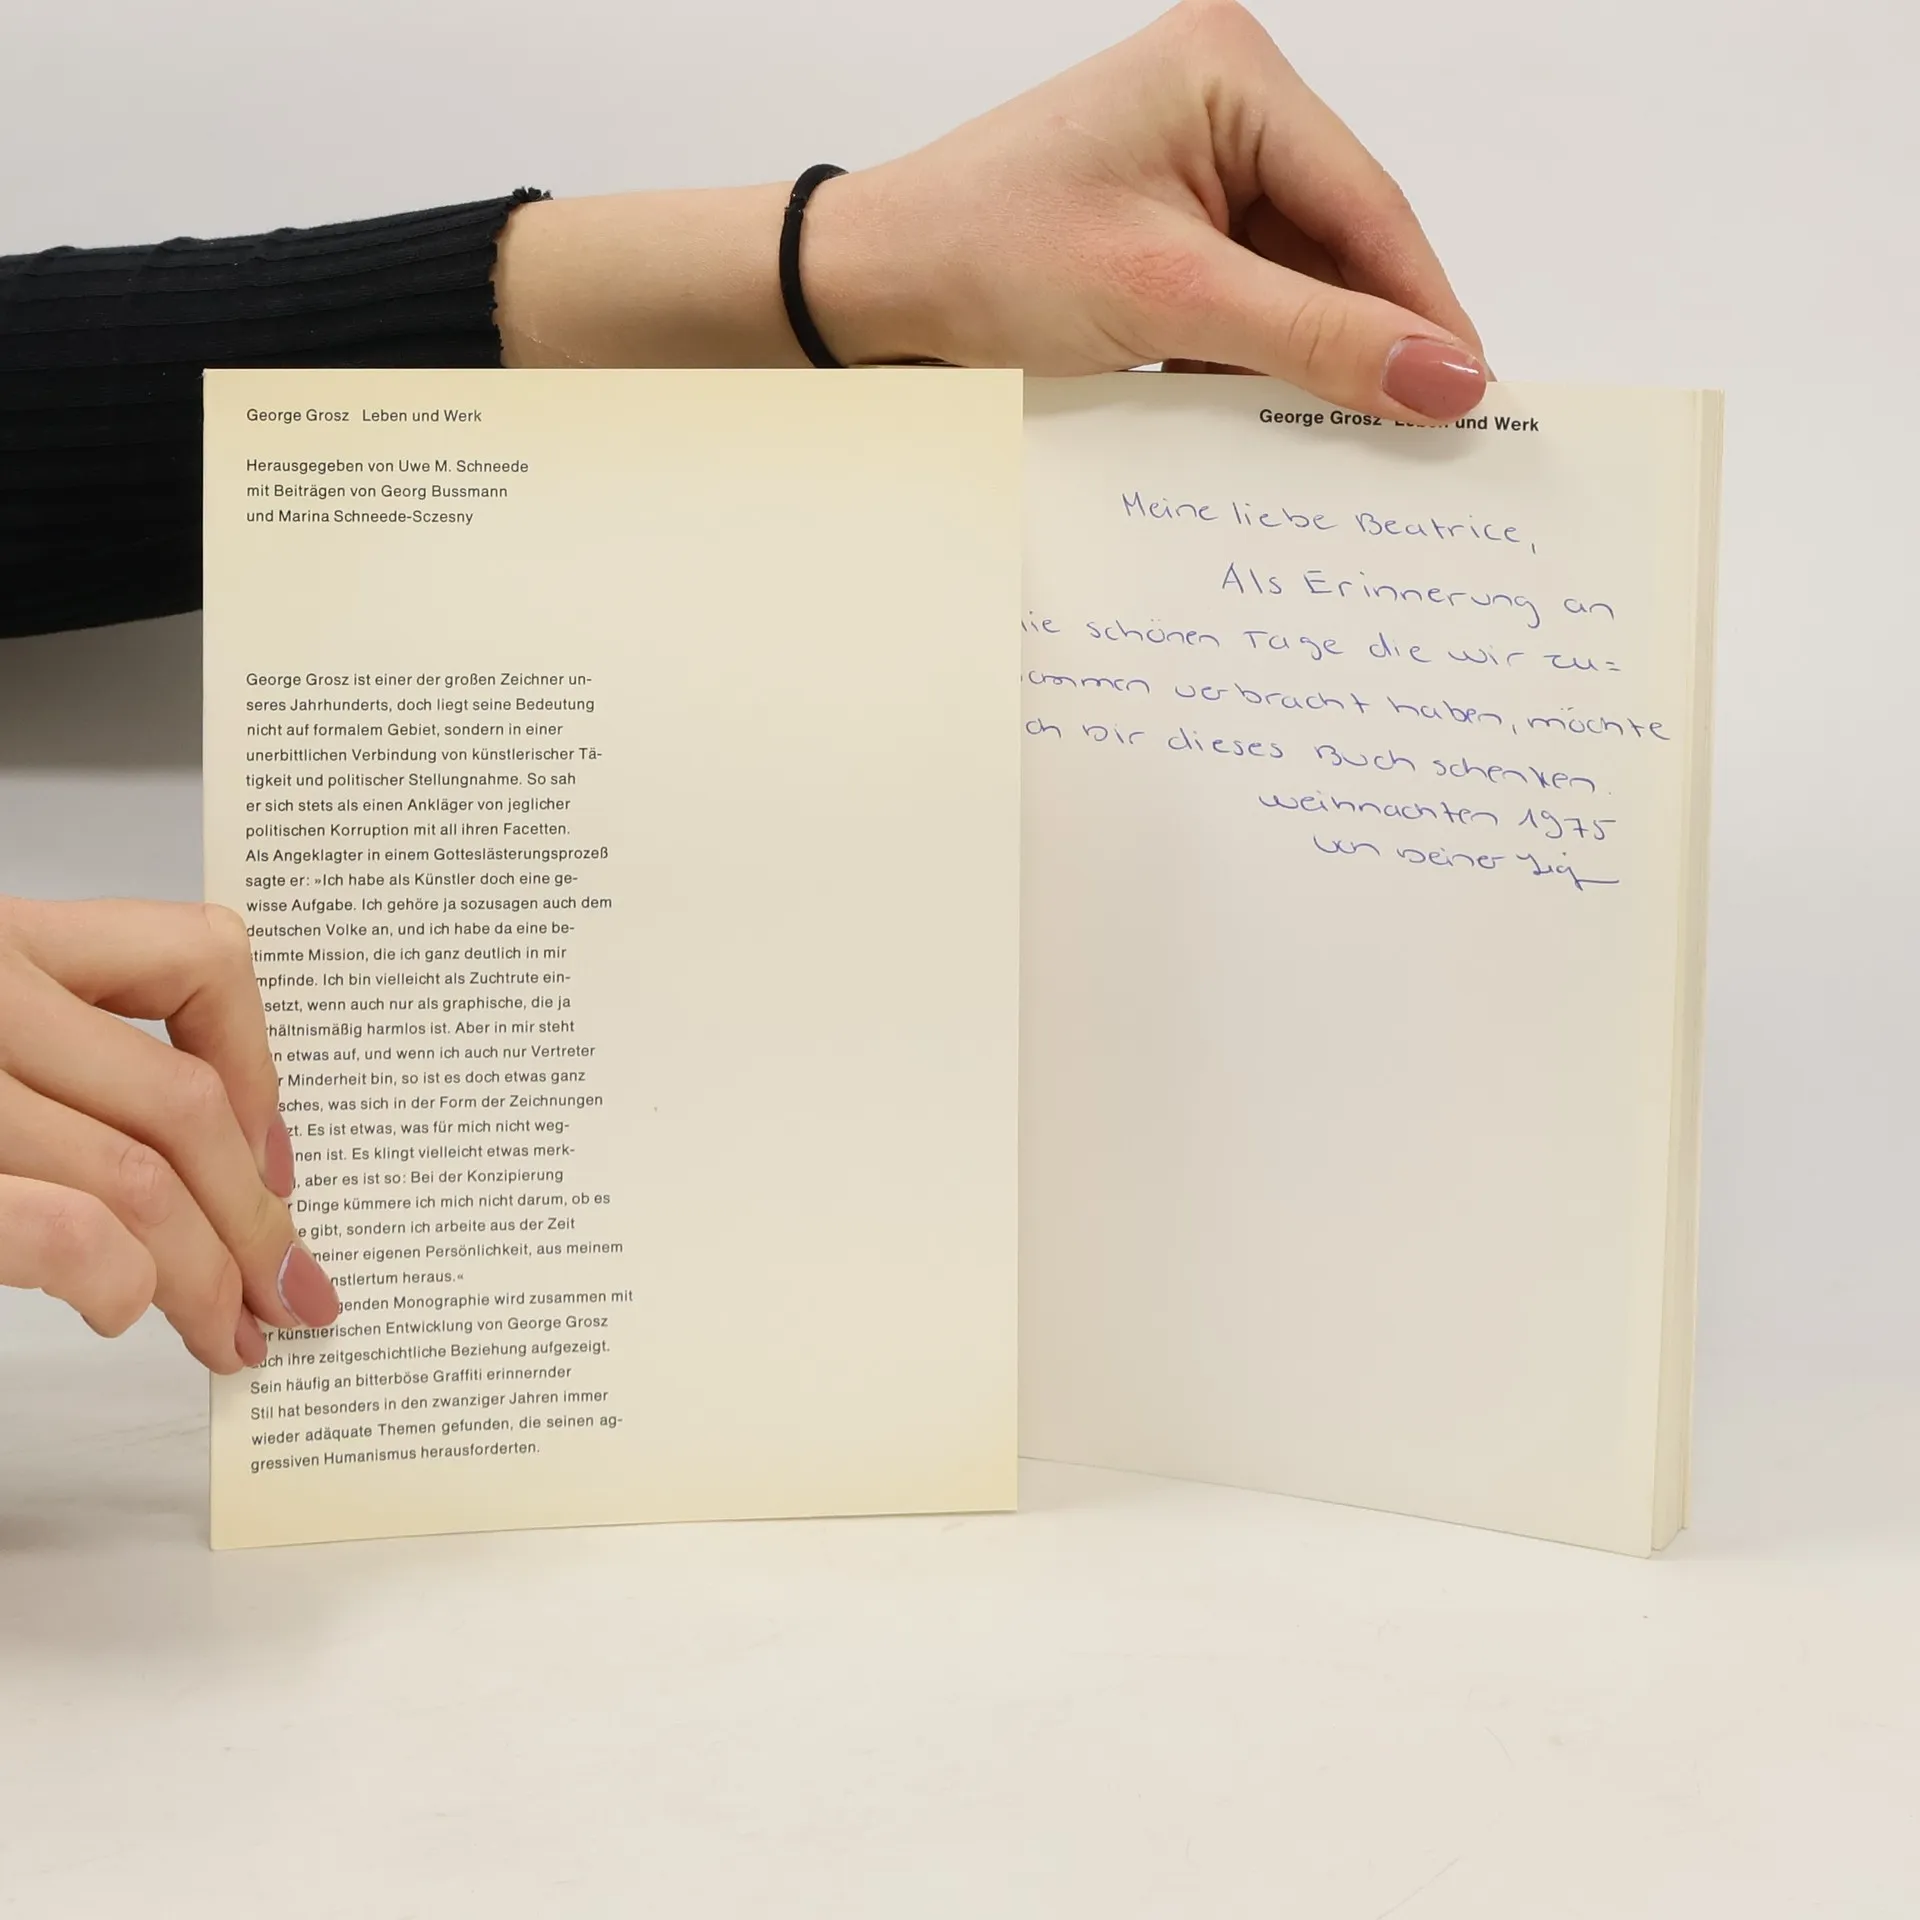 George Grosz Leben und Werk
Herausgegeben von Uwe M. Schneede
mit Beiträgen von Georg Bussmann
und Marina Schneede-Sczesny
George Grosz ist einer der großen Zeichner un-
seres Jahrhunderts, doch liegt seine Bedeutung
nicht auf formalem Gebiet, sondern in einer
unerbittlichen Verbindung von künstlerischer Tä-
tigkeit und politischer Stellungnahme. So sah
er sich stets als einen Ankläger von jeglicher
politischen Korruption mit all ihren Facetten.
Als Angeklagter in einem Gotteslästerungsprozeß
sagte er: »Ich habe als Künstler doch eine ge-
wisse Aufgabe. Ich gehöre ja sozusagen auch dem
deutschen Volke an, und ich habe da eine be-
timmte Mission, die ich ganz deutlich in mir
mpfinde. Ich bin vielleicht als Zuchtrute ein-
setzt, wenn auch nur als graphische, die ja
hältnismäßig harmlos ist. Aber in mir steht
n etwas auf, und wenn ich auch nur Vertreter
r Minderheit bin, so ist es doch etwas ganz
sches, was sich in der Form der Zeichnungen
zt. Es ist etwas, was für mich nicht weg-
nen ist. Es klingt vielleicht etwas merk-
, aber es ist so: Bei der Konzipierung
r Dinge kümmere ich mich nicht darum, ob es
e gibt, sondern ich arbeite aus der Zeit
meiner eigenen Persönlichkeit, aus meinem
nstlertum heraus.«
genden Monographie wird zusammen mit
er künstlerischen Entwicklung von George Grosz
auch ihre zeitgeschichtliche Beziehung aufgezeigt.
Sein häufig an bitterböse Graffiti erinnernder
Stil hat besonders in den zwanziger Jahren immer
wieder adäquate Themen gefunden, die seinen ag-
gressiven Humanismus herausforderten.
George Grosz Leben und Werk
Meine liebe Beatrice,
Als Erinnerung an
die schönen Tage die wir zu=
sammen verbracht haben, möchte
ich Dir dieses Buch schenken.
Weihnachten 1975
von Deiner